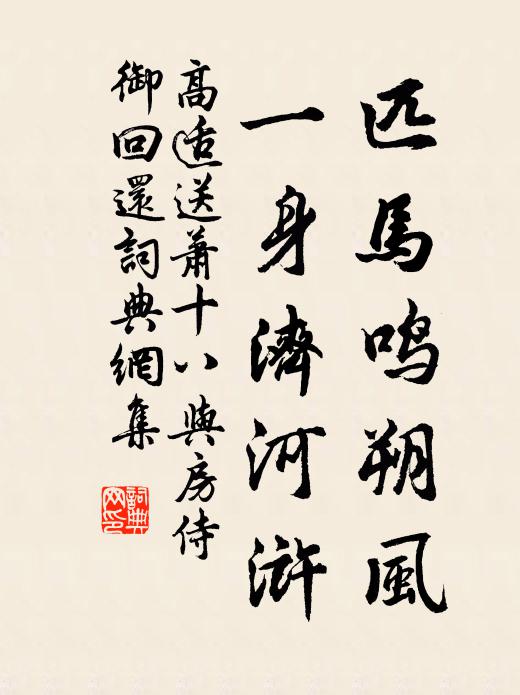 匹馬鳴朔風
一身濟河滸
高适送蕭十八與房侍
御回還詞典網集
詞典
网印